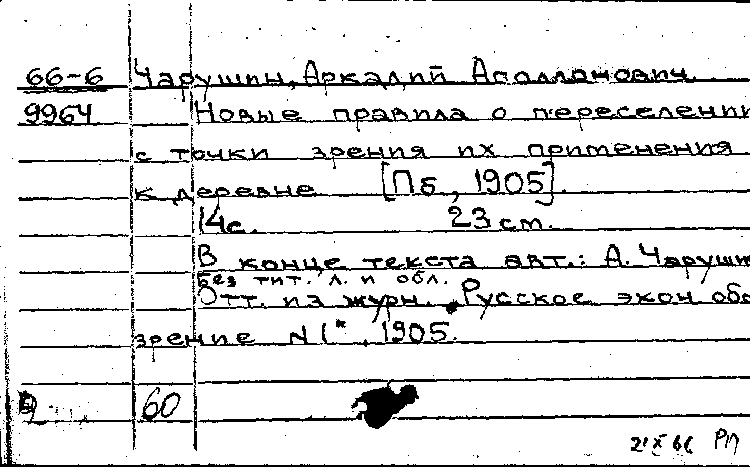 66-6 Чарушин, Аркадий Аполлонович.
9964 Новые правила о переселении
с точки зрения их применения
к деревне [Пб, 1905].
14с. 23 см.
В конце текста авт.: А. Чарушин
Без тит. л. и обл.
Отт. из журн. "Русское экон обо
зрение N 1", 1905.
60
21 X 66 РП